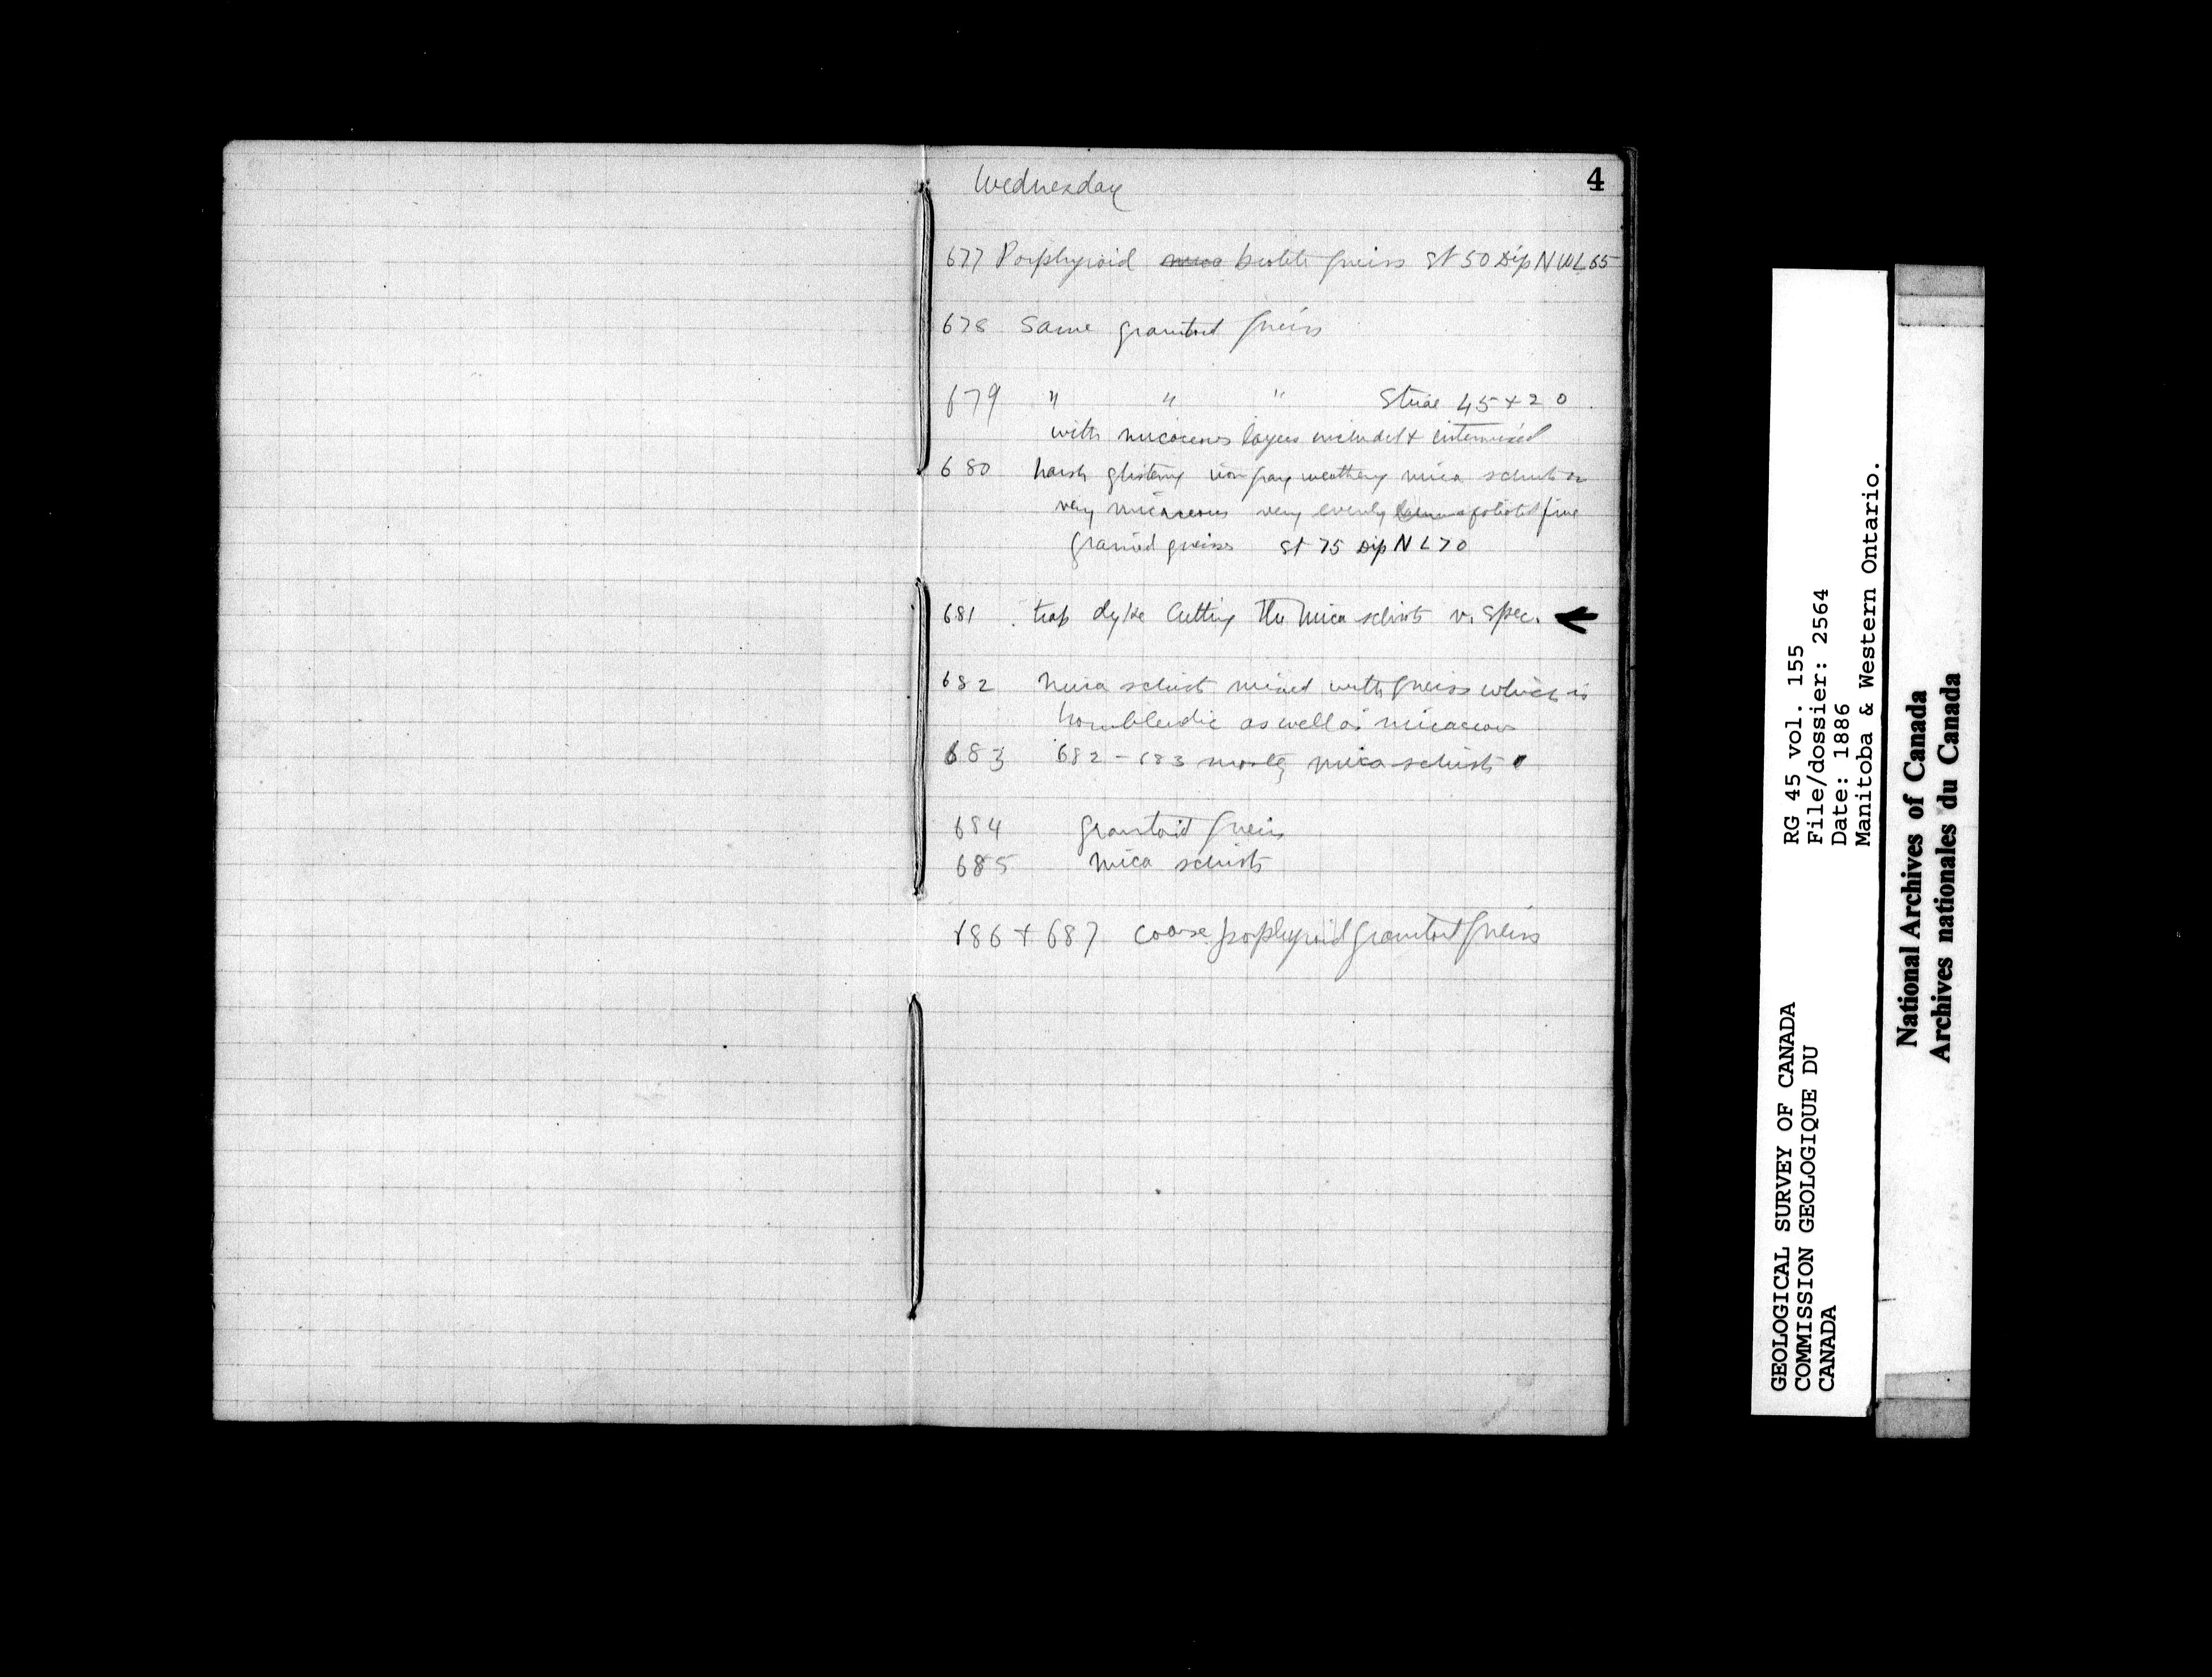 4
Wednesday
677 Porphyroid biotite gneiss St 50 Dip N W L 65
678 Same granitoid gneiss
679 " " " Striae 45 + 20
with micaceous layers included & intermixed
680 harsh glistening iron gray weathering mica schist or
very micaceous very evenly foliated fine
grained gneiss St 75 Dip N L 70
681 trap dyke cutting the mica schists v. spec. ←
682 mica schist mixed with gneiss which is
hornblendic as well as micaceous
683 682 - 683 mostly mica schists
684 granitoid gneiss
685 mica schists
686 + 687 coarse porphyroid granitoid gneiss
RG 45 vol. 155
File/dossier: 2564
Date: 1886
Manitoba & Western Ontario.
GEOLOGICAL SURVEY OF CANADA
COMMISSION GEOLOGIQUE DU
CANADA
National Archives of Canada
Archives nationales du Canada